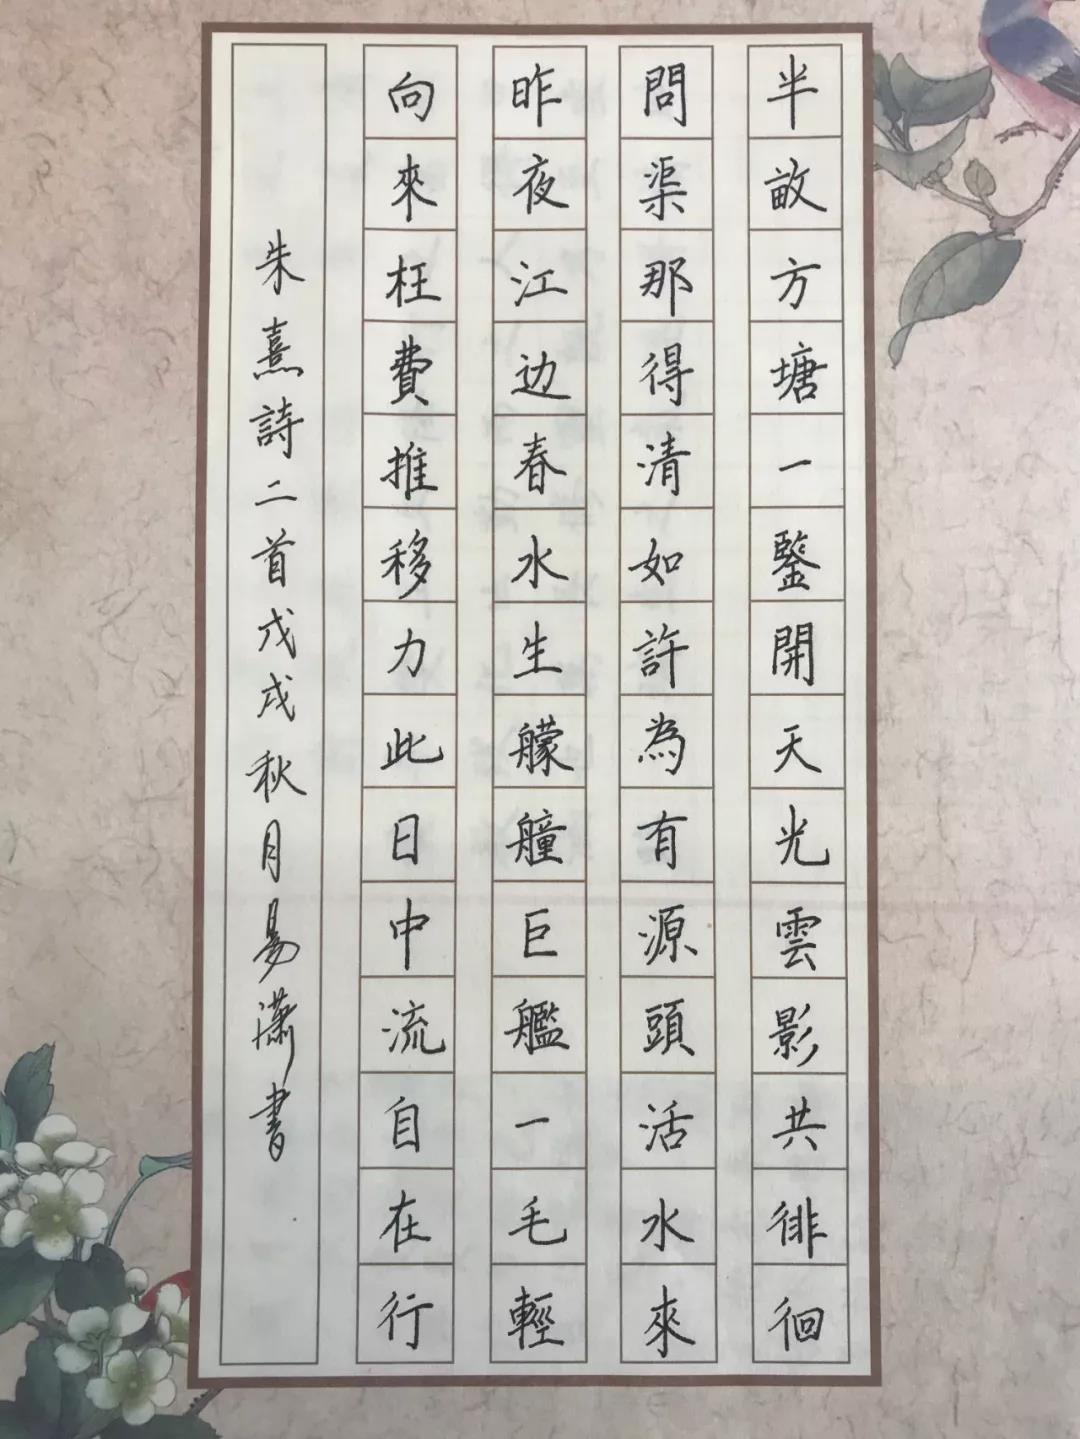 半畝方塘一鑒開天光雲影共徘徊
問渠那得清如許為有源頭活水來
昨夜江边春水生艨艟巨艦一毛輕
向來枉費推移力此日中流自在行
朱熹詩二首戊戌秋月易瀟書